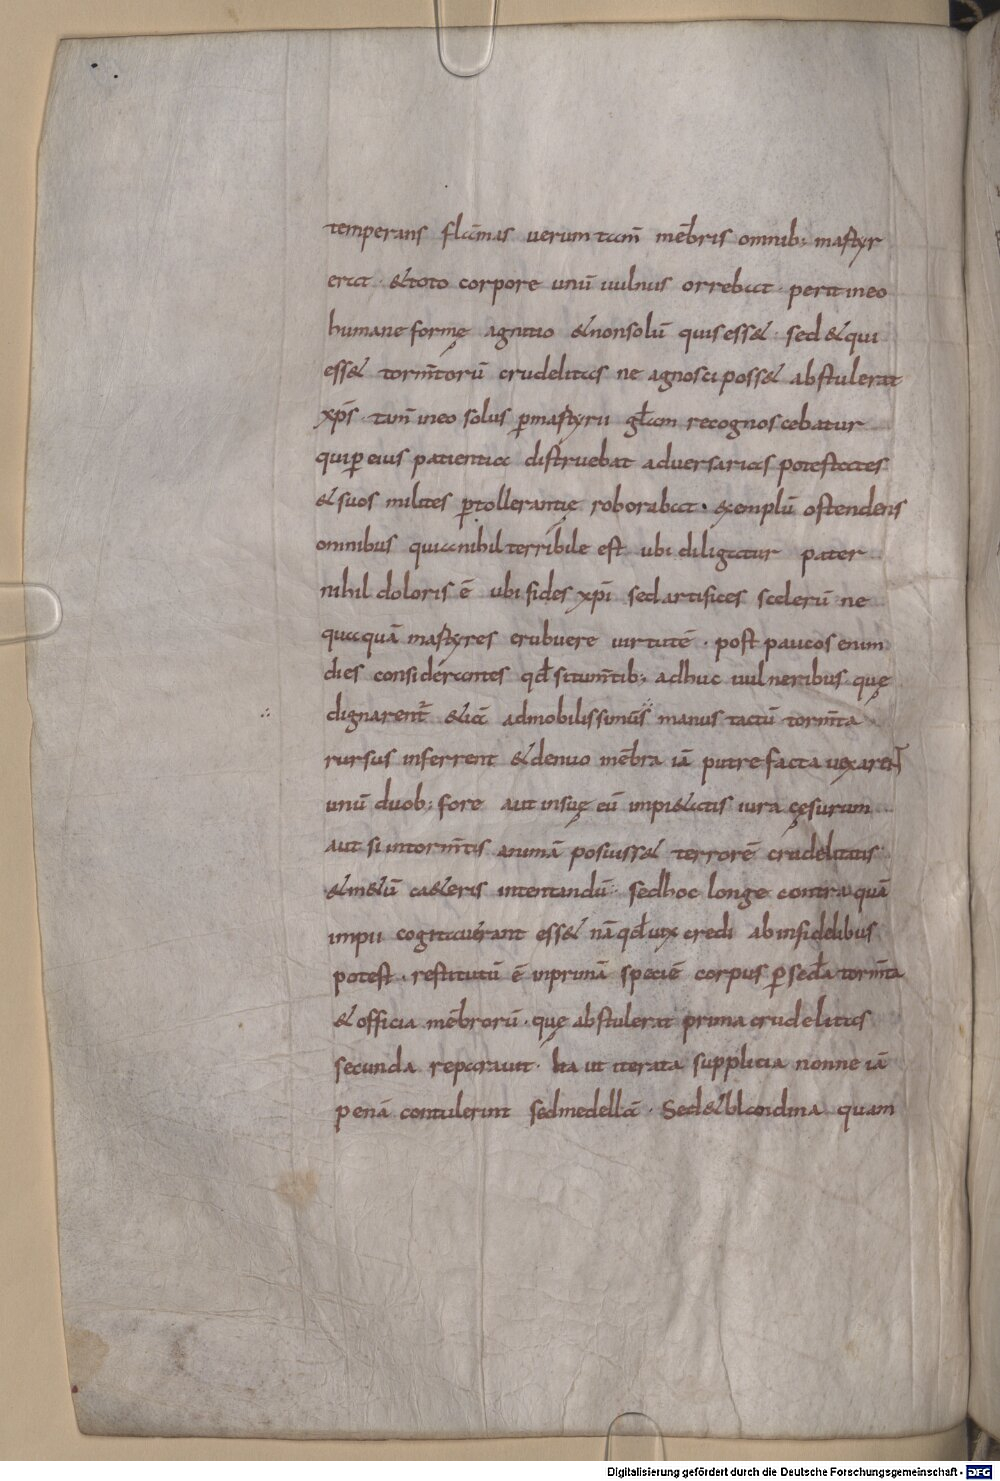 temperans flāmas uerum tam̄ mēbris omnib; mastyr
erat · & toto corpore unū uulnus orrebat · perit ineo
humane formę agnitio & nonsolū quis ess& · sed & qui
ess& torm̄torū crudelitas ne agnosci poss& abstulerat
xp̄s · tam̄ ineo solus ꝑ mastyrii gl̄am recognoscebatur
qui ꝑ eius patientia distruebat adversarias potestates
& suos milites ꝑ tollerantię roborabat · exemplū ostendens
omnibus quia nihil terribile est ubi diligatur pater
nihil doloris ē ubi fides xp̄i sed artifices scelerū ne
quaquā mastyres erubuere uirtutē · post paucos enim
dies considerantes qd̄ si tum̄tib; adhuc uulneribus quę
dignarent̄ &iā ad mobilissimūs manus tactū torm̄ta
rursus inferrent & denuo mēbra iā putrefacta uexarent̄
unū duob; fore aut insuę eū impi&atis iura cęsurum
aut si intorm̄tis animā posuiss& terrorē crudelitatis
& m&ū ca&eris intentandū · sed hoc longe contra quā
impii cogitauerant ess& nā qd̄ uix credi ab infidelibus
potest · restitutū ē in primā speciē corpus ꝑ sed̄a torm̄ta
& officia mēbrorū · quę abstulerat prima crudelitas
secunda reparauit · ita ut iterata supplicia non ne iā
penā contulerint sed medellā · Sed & blandina quam
Digitalisierung gefördert durch die Deutsche Forschungsgemeinschaft - DFG